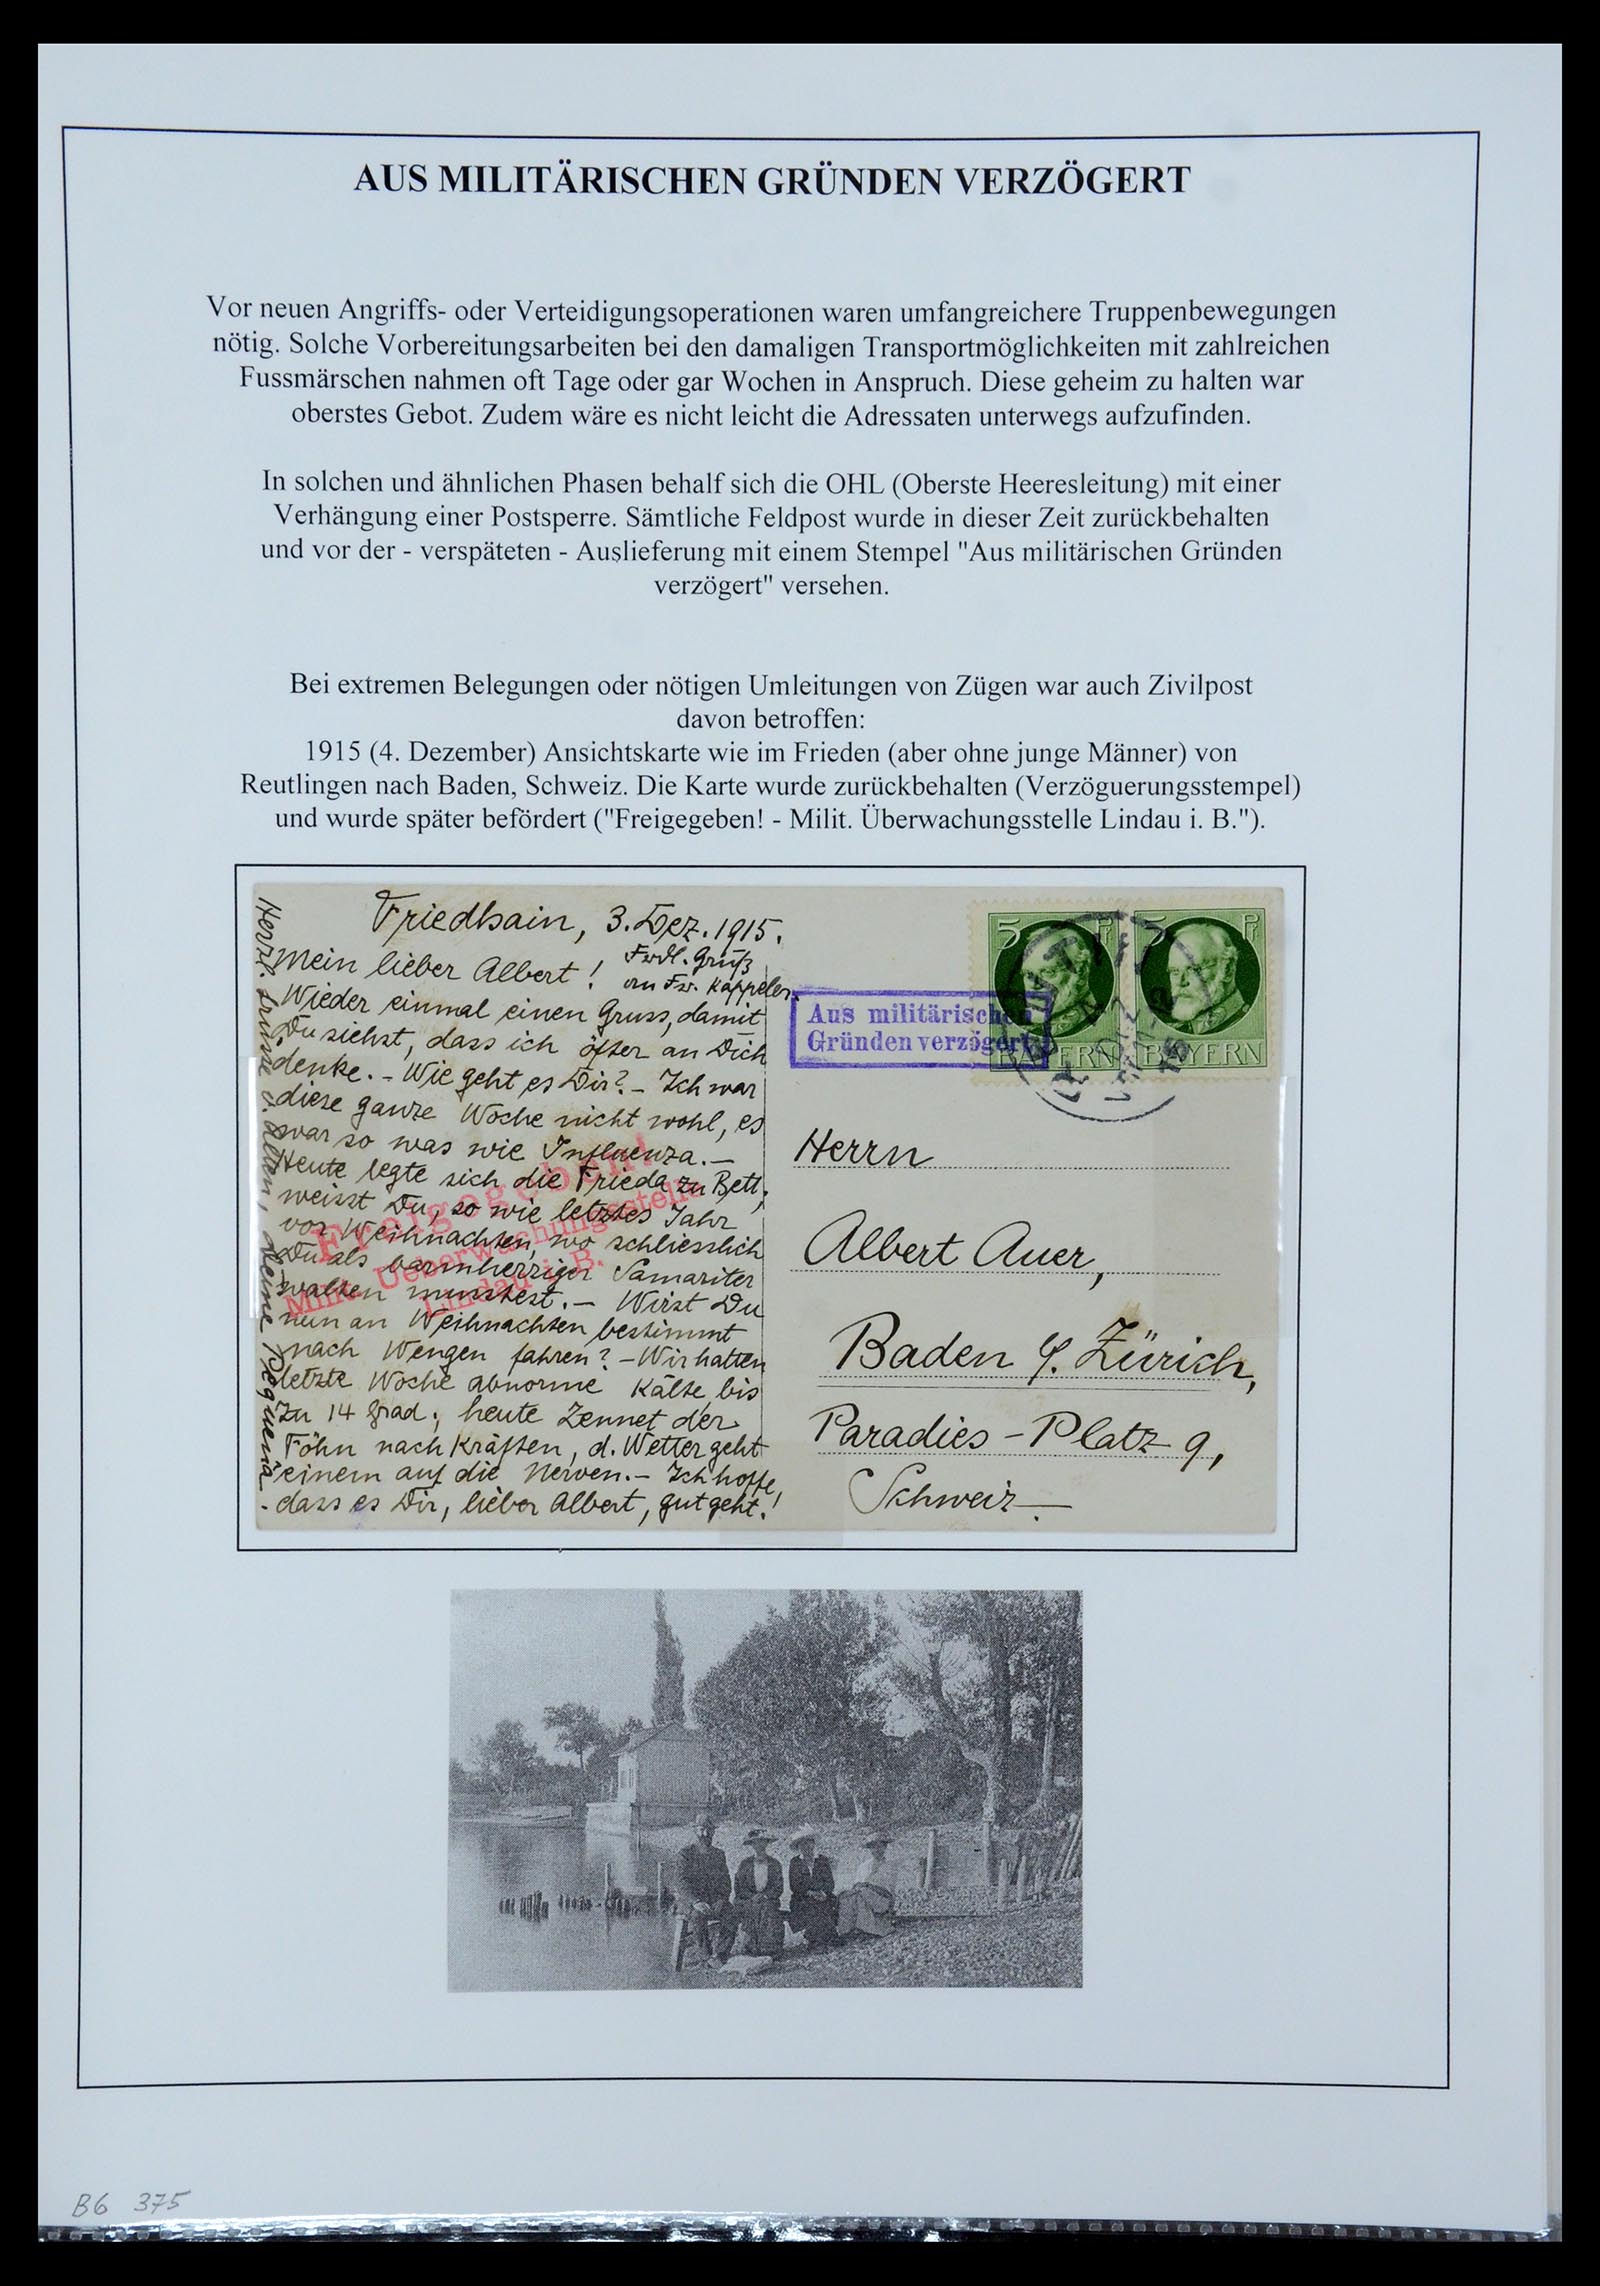 AUS MILITÄRISCHEN GRÜNDEN VERZÖGERT
Vor neuen Angriffs- oder Verteidigungsoperationen waren umfangreichere Truppenbewegungen
nötig. Solche Vorbereitungsarbeiten bei den damaligen Transportmöglichkeiten mit zahlreichen
Fussmärschen nahmen oft Tage oder gar Wochen in Anspruch. Diese geheim zu halten war
oberstes Gebot. Zudem wäre es nicht leicht die Adressaten unterwegs aufzufinden.
In solchen und ähnlichen Phasen behalf sich die OHL (Oberste Heeresleitung) mit einer
Verhängung einer Postsperre. Sämtliche Feldpost wurde in dieser Zeit zurückbehalten
und vor der - verspäteten - Auslieferung mit einem Stempel "Aus militärischen Gründen
verzögert" versehen.
Bei extremen Belegungen oder nötigen Umleitungen von Zügen war auch Zivilpost
davon betroffen:
1915 (4. Dezember) Ansichtskarte wie im Frieden (aber ohne junge Männer) von
Reutlingen nach Baden, Schweiz. Die Karte wurde zurückbehalten (Verzöguerungsstempel)
und wurde später befördert ("Freigegeben! - Milit. Überwachungsstelle Lindau i. B.").
Friedhain, 3. Dez. 1915.
Mein lieber Albert!
Frdl. Gruß
an Fr. Kappeler.
Wieder einmal einen Gruss, damit
Du siehst, dass ich öfter an Dich
denke. - Wie geht es Dir? - Ich war
diese ganze Woche nicht wohl, es
war so was wie Influenza. -
Heute legte sich die Frieda zu Bett,
weisst Du, so wie letztes Jahr
vor Weihnachten, wo schliesslich
Du als barmherziger Samariter
walten musstest. - Wirst Du
nun an Weihnachten bestimmt
nach Wengen fahren? - Wir hatten
letzte Woche abnorme Kälte, bis
zu 14 Grad; heute zennet der
Föhn nach Kräften, d. Wetter geht
einem auf die Nerven. - Ich hoffe,
dass es Dir, lieber Albert, gut geht!
Herzl. Grüsse
Freigegeben!
Milit. Ueberwachungsstelle
Lindau i. B.
Aus militärischen
Gründen verzögert
5 Pf
5 Pf
BAYERN
BAYERN
Herrn
Albert Auer,
Baden b. Zürich,
Paradies-Platz 9,
Schweiz
B6 375